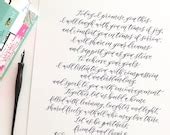 Today, I promise you this:
I will laugh with you in times of joy,
and comfort you in times of sorrow.
I will share in your dreams
and support you as you strive
to achieve your goals.
I will listen to you with compassion
and understanding,
and speak to you with encouragement.
Together, let us build a home
filled with learning, laughter and light,
shared freely with all who may live there.
Let us be partners,
friends and lovers